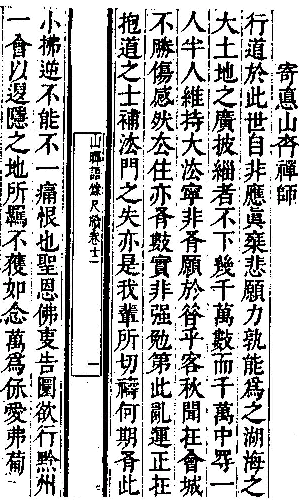 寄惠山齊禪師
行道於此世自非應真乘悲願力孰能爲之湖海之
大土地之廣披緇者不下幾千萬數而千萬中尋一
人半人維持大法寧非胥願於谷乎客秋聞在會城
不勝傷感然去住亦胥數實非强勉第此亂運正在
抱道之士補法門之失亦是我輩所切禱何期胥此
山暉語錄尺牘卷十二
小拂逆不能不一痛恨也聖恩佛吏告圜欲行黔州
一會以遐隱之地所羈不獲如念萬爲保愛弗蔔